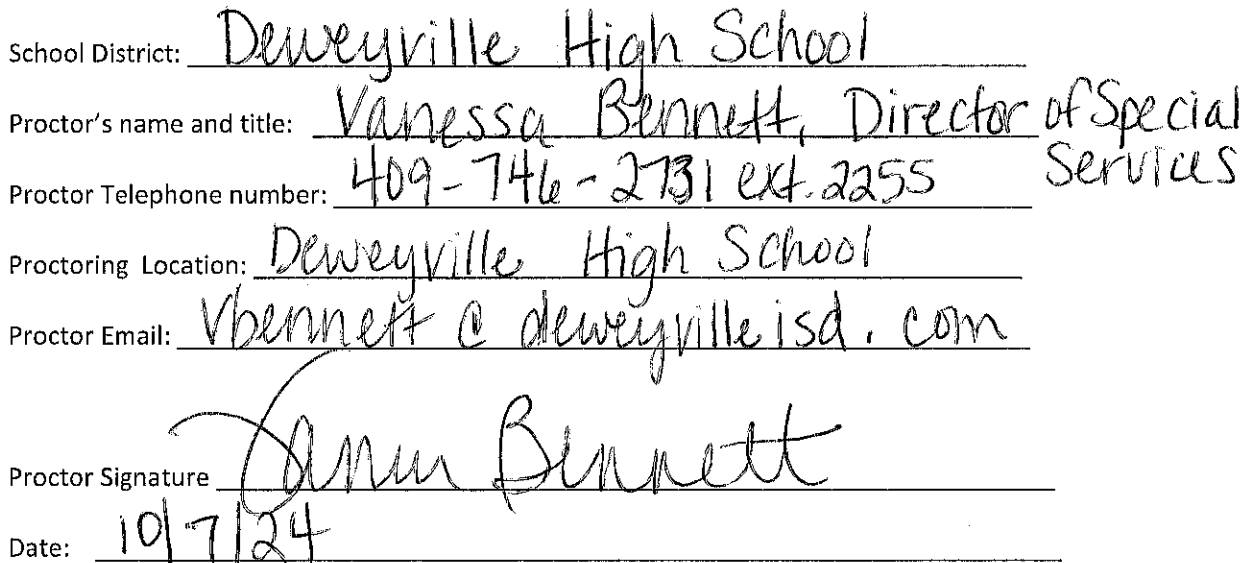 School District: Deweyville High School
Proctor's name and title: Vanessa Bennett, Director of Special
Services
Proctor Telephone number: 409-746-2731 ext. 2255
Proctoring Location: Deweyville High School
Proctor Email: Vbennett @ deweyvilleisd.com
Proctor Signature Bennett
Date: 10/7/24